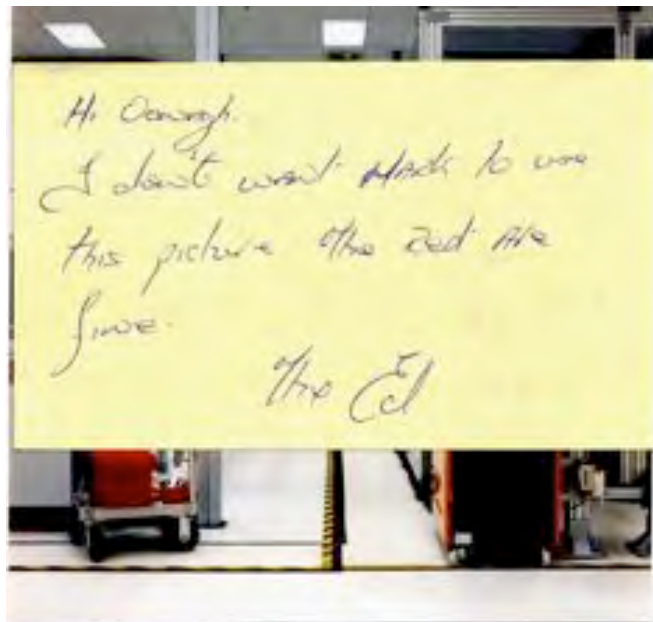 Hi Oonagh.
I don't want Mark to use
this picture the rest are
fine.
The Ed